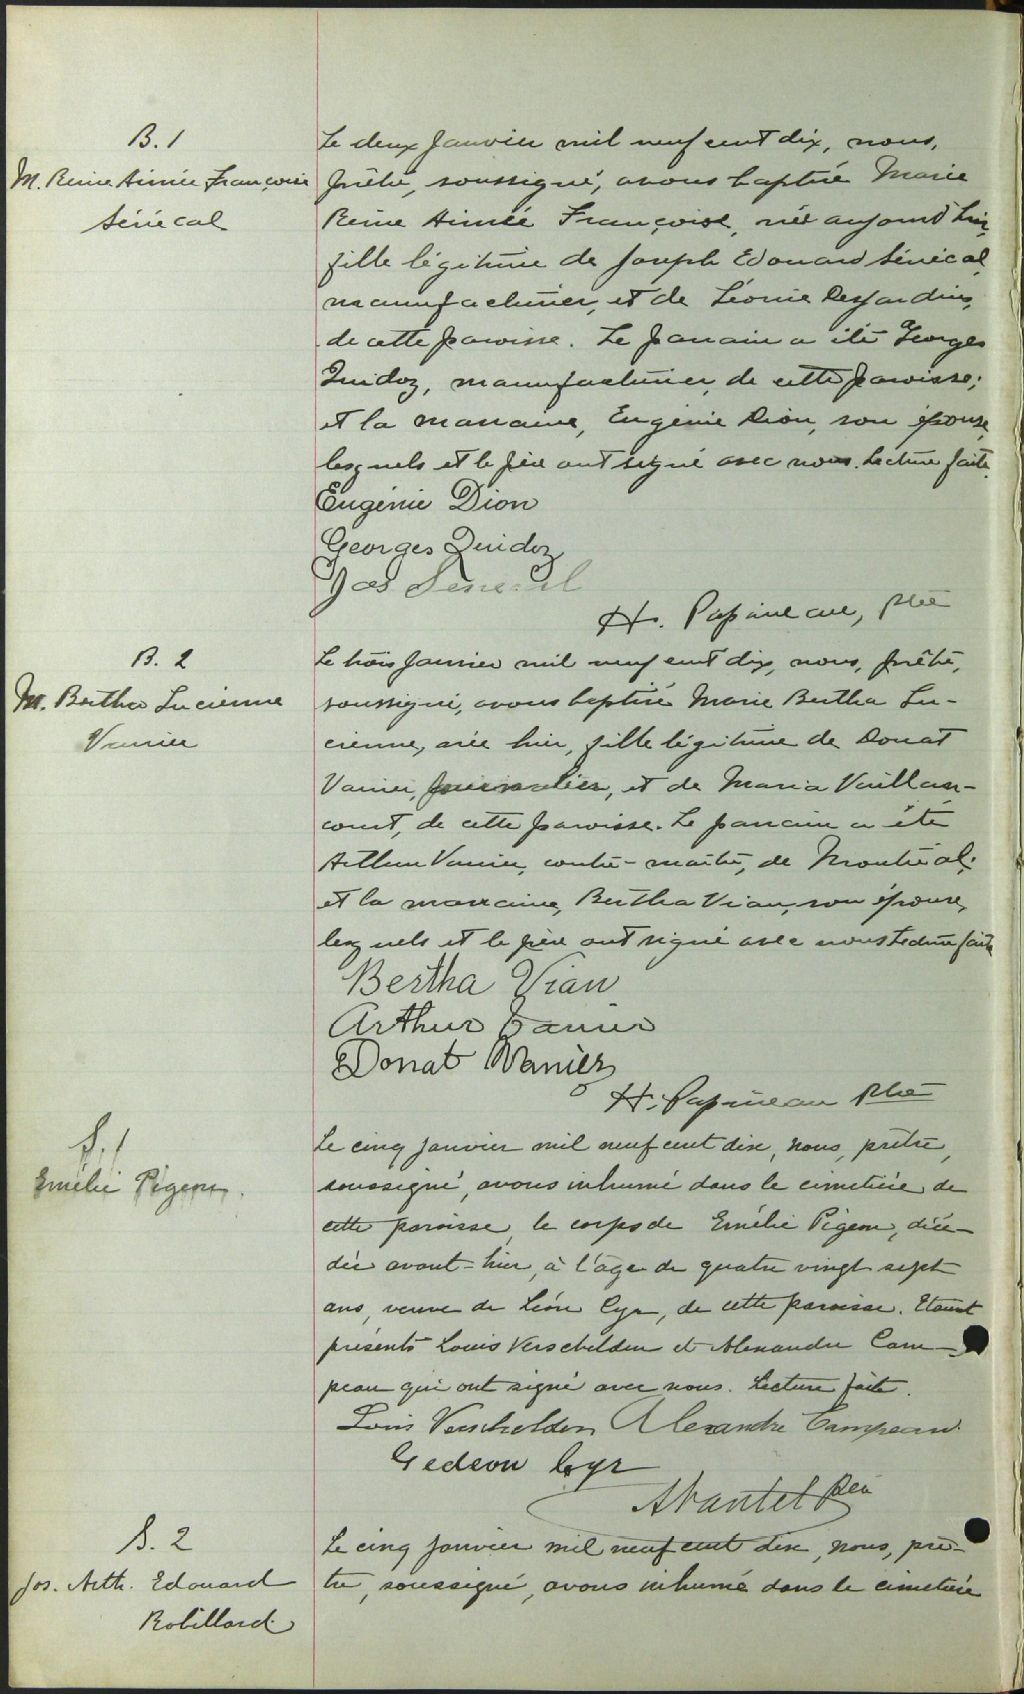 B. 1
M. Reine Aimée Françoise
Sénécal
Le deux Janvier mil neuf cent dix, nous,
prêtre, soussigné, avons baptisé Marie
Reine Aimée Françoise, née aujourd'hui,
fille légitime de Joseph Edouard Sénécal,
manufacturier, et de Léonie Desjardins,
de cette paroisse. Le parrain a été Georges
Quidoz, manufacturier, de cette paroisse;
et la marraine, Eugénie Dion, son épouse,
lesquels et le père ont signé avec nous. Lecture faite.
Eugénie Dion
Georges Quidoz
Jos Sénécal
H. Papineau, ptre
B. 2
M. Bertha Lucienne
Vanier
Le trois Janvier mil neuf cent dix, nous, prêtre,
soussigné, avons baptisé Marie Bertha Lu-
cienne, née hier, fille légitime de Donat
Vanier, journalier, et de Maria Vaillan-
court, de cette paroisse. Le parrain a été
Arthur Vanier, contre-maître, de Montréal;
et la marraine, Bertha Viau, son épouse,
lesquels et le père ont signé avec nous Lecture faite
Bertha Viau
Arthur Vanier
Donat Vanier
H. Papineau ptre
S. 1
Emélie Pigeon.
Le cinq janvier mil neuf cent dix, nous, prêtre,
soussigné, avons inhumé dans le cimetière de
cette paroisse, le corps de Emélie Pigeon, décé-
dée avant-hier, à l'âge de quatre vingt sept
ans, veuve de Léon Cyr, de cette paroisse. Etaient
présents Louis Verschelden et Alexandre Cam-
peau qui ont signé avec nous. Lecture faite.
Louis Verschelden Alexandre Campeau
Gedeon Cyr
A Nantel Ptre
S. 2
Jos. Arth. Edouard
Robillard
Le cinq janvier mil neuf cent dix, nous, prê-
tre, soussigné, avons inhumé dans le cimetière